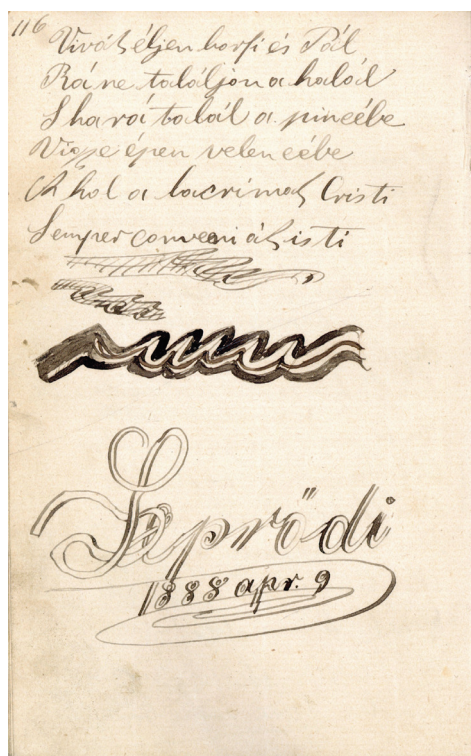 116
Vivát éljen borfi és Pál
Rá ne találjon a halál
S ha rá talál a pincébe
Vigye épen velencébe
A hol a lacrimah Cristi
Semper conveni áh isti
Seprődi
1888 apr. 9